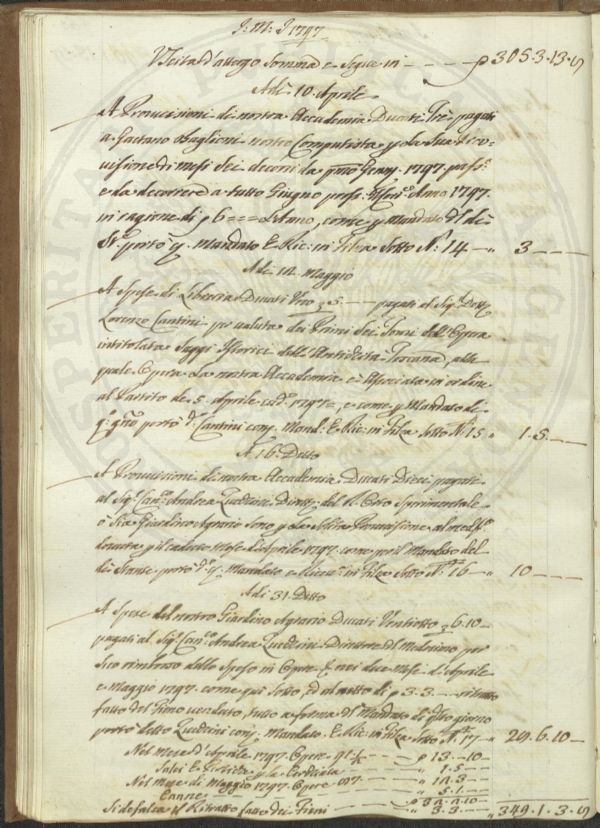 J: M: J 1797
Uscita d'attergo Somma e Segue in 305.3.13.9
Adi 10. Aprile
A Provvisioni di nostra Accademia Ducati Tre pagati
a Gaetano Baglioni nostro Computista p la Sua Prov-
visione di mesi Sei decorsi da p.mo Genn. 1797. pass.
e da decorrere a tutto Giugno pross. Anno 1797.
in ragione di 6 = = = l'Anno, come p Mandato
portò q. Mandato E Ric: in Filza Sotto N.° 14 — 3
Adi 14. Maggio
A Spese di Libreria Ducati Uno 5. pagati al Sig. Dott.
Lorenzo Cantini per valuta dei Primi Sei Tomi dell'Opera
intitolata Saggi Istorici dell'Antichità Toscana, alla
quale Opera la nostra Accademia è Associata in ordine
al Partito de 5. Aprile 1797, e come p Mandato di
q. portò d. Cantini cong. Mand. E Ric: in Filza Sotto N. 15 1.5.
A 16. Detto
A Provvisioni di nostra Accademia Ducati Dieci pagati
al Sig. Can.co Andrea Zucchini Dirett. del R. Orto Sperimentale
o Sia Giardino Agrario Sono p la Solita Provvisione
dovuta p il caduto Mese d'Aprile 1797. come per il Mandato del
portò d. Mandato e Ricev. in Filza Sotto N. 16 10
Adi 31. Detto
A Spese del nostro Giardino Agrario Ducati Ventinove 6.10
pagati al Sig. Can.co Andrea Zucchini Direttore del Medesimo per
Suo rimborso delle Spese in Opere nei due Mesi d'Aprile
e Maggio 1797. come qui Sotto, ed al netto di 3.3. ritratto
fatto del Fieno venduto, tutto a forma del Mandato di q.sto giorno
portò detto Zucchini cong. Mandato. E Ric: in Filza Sotto N. 17 29.6.10
Nel Mese d'Aprile 1797. Opere 13.—10
1.5.
Nel Mese di Maggio 1797. Opere
Canne 5.1.
Si defalca il Ritratto fatto del Fieno 3.3. 349.1.3.9